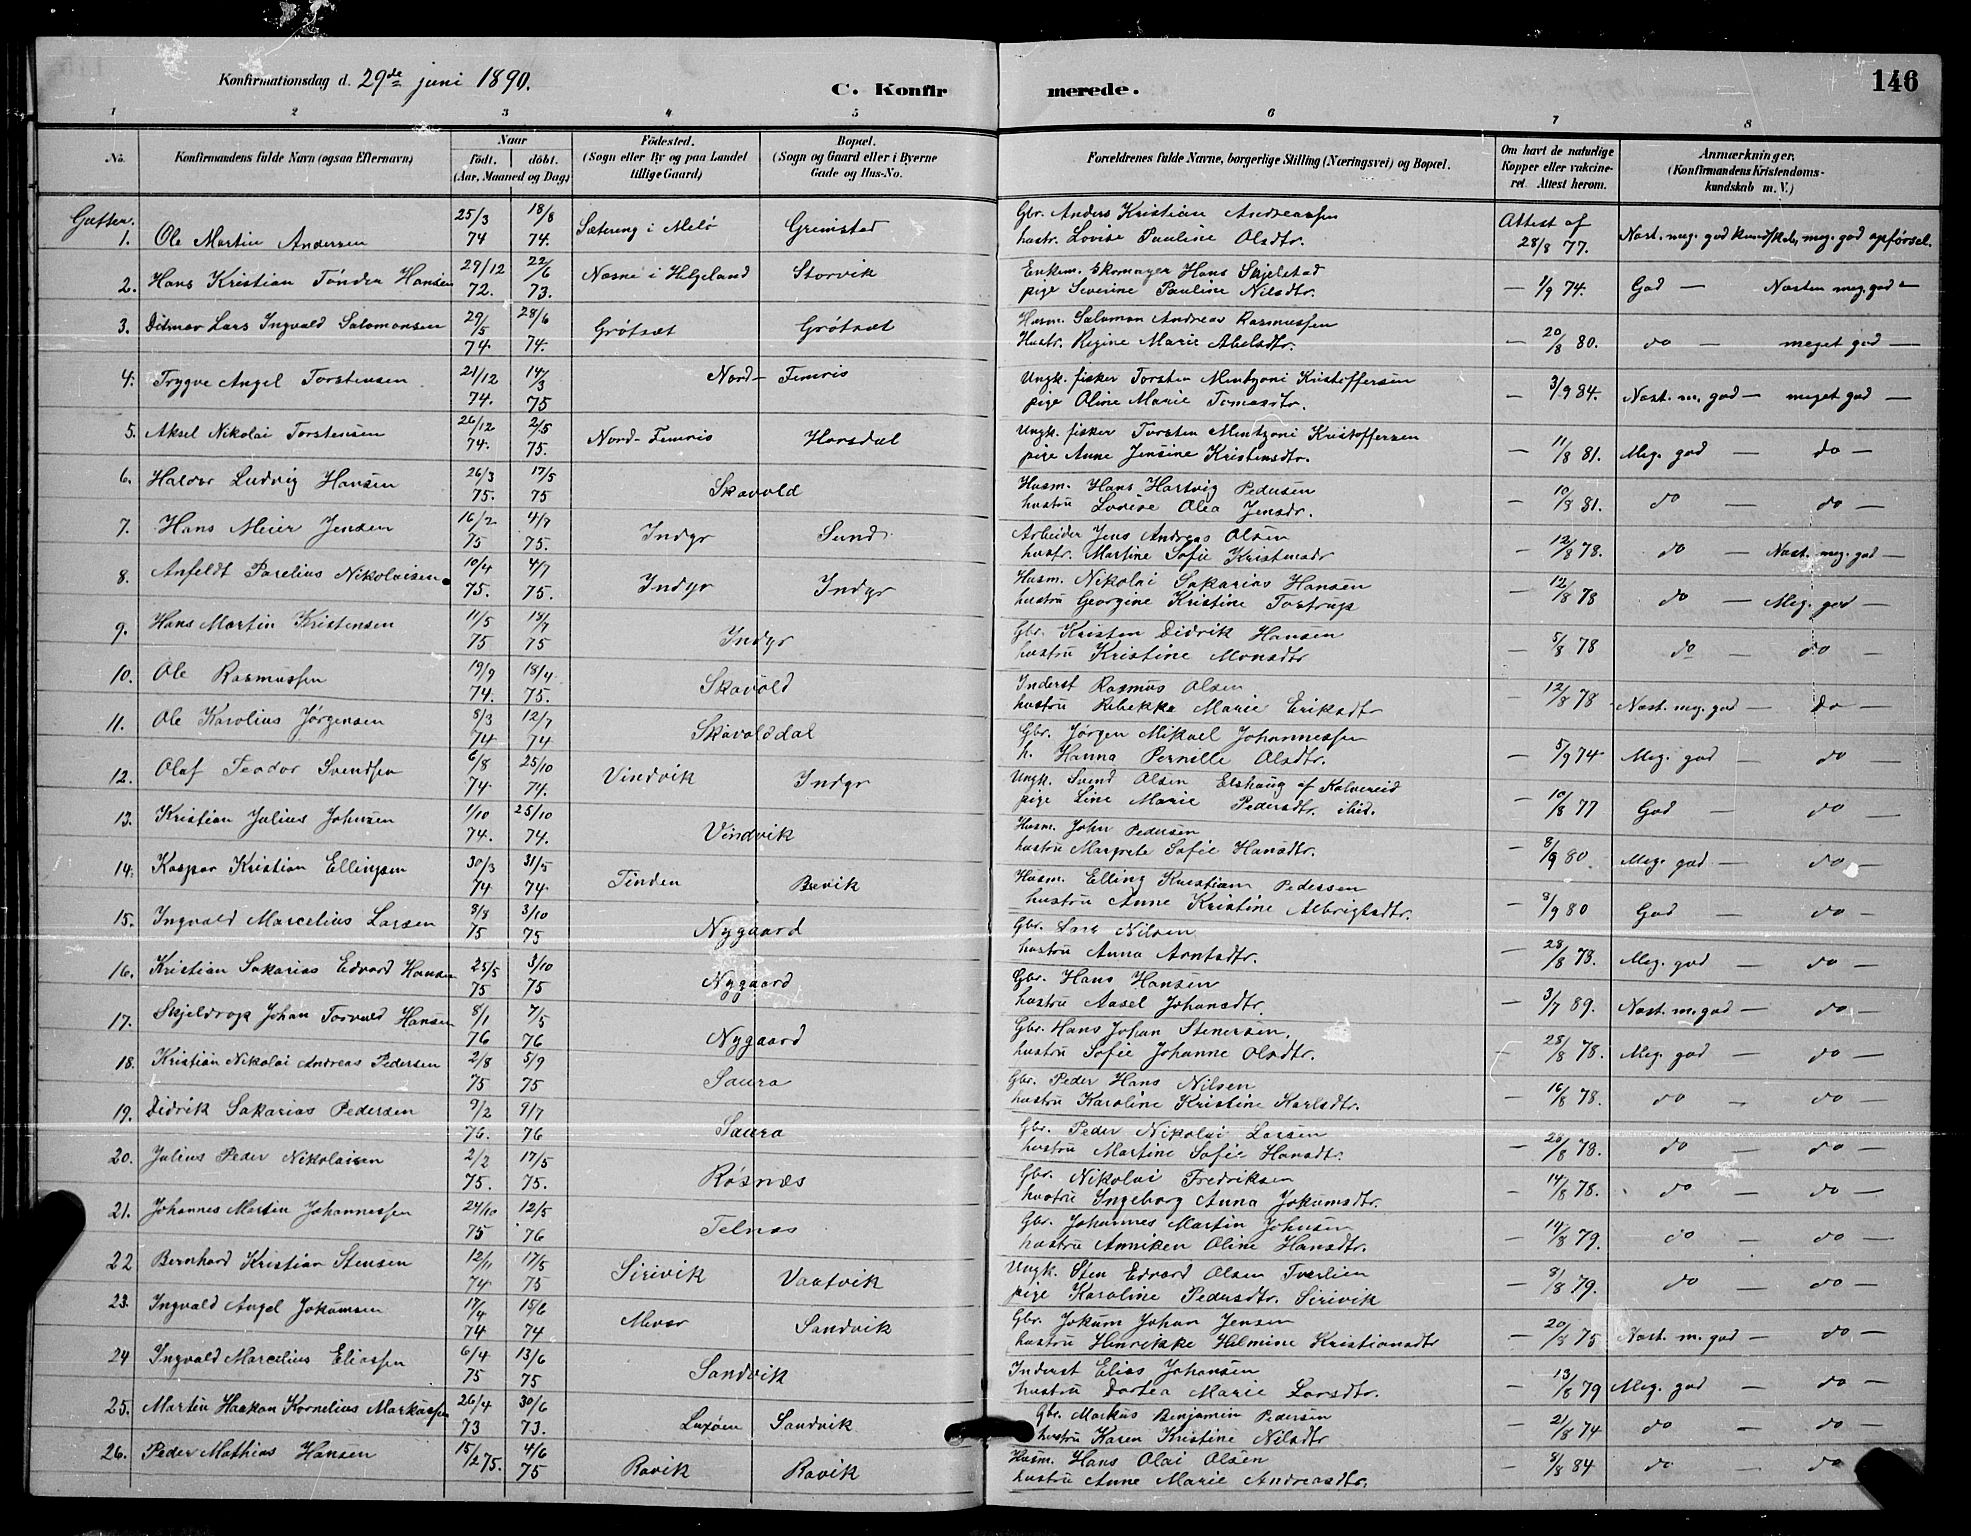 Konfirmationsdag d. 29de juni 1890.
C. Konfir merede.
146
1 2 3 4 5 6 7 8
No.
Konfirmandens fulde Navn (ogsaa Efternavn)
Naar
födt. döbt.
(Aar, Maaned og Dag)
Födested.
(Sogn eller By og paa Landet
tillige Gaard)
Bopæl.
(Sogn og Gaard eller i Byerne
Gade og Hus-No.
Forældrenes fulde Navne, borgerlige Stilling (Næringsvei) og Bopæl.
Om havt de naturlige
Kopper eller vakcine-
ret. Attest herom.
Anmærkninger.
(Konfirmandens Kristendoms-
kundskab m. V.)
Gutter.
1. Ole Martin Andersen 25/3 74 18/8 74. Sætereng i Melö Grimstad Gbr. Anders Kristian Andreassen
hustr. Lovise Pauline Olsdtr. Attest af 28/8 77. Næst. meg. god kundskab, meg. god opförsel.
2. Hans Kristian Tönder Hansen 29/12 72. 22/6 73. Nesne i Helgeland Storvik Enkem. Skomager Hans Skjelstad
pige Severine Pauline Nilsdtr. — 1/9 74. God — Næsten meg. god —
3. Ditmar Lars Ingvald Salomonsen 29/5 74. 28/6 74. Grötsæt Grötsæt Husm. Salomon Andreas Rasmussen
Hustr. Regine Marie Abelsdtr. — 20/8 80. do — meget god —
4. Trygve Angel Torstensen 21/12 74. 14/3 75 Nord-Femris Ungk. fisker Torsten Mentzoni Kristoffersen
pige Oline Marie Tomasdtr. — 3/9 84. Næst. m. god — meget god —
5. Aksel Nikolai Torstensen 26/12 74. 2/5 75. Nord-Femris Horsdal Ungk. fisker Torsten Mentzoni Kristoffersen
pige Anne Jensine Kristensdtr. — 11/8 81. Meg. god — do —
6. Haldor Ludvig Hansen 26/3 75. 17/5 75 Skavold Husm. Hans Hartvig Pedersen
hustru Lovise Olea Jensdr. — 10/8 81. do do —
7. Hans Meier Jensen 16/2 75 4/7 75. Indyr Sund Arbeider Jens Andreas Olsen
hustr. Martine Sofie Kristensdr — 12/8 78. do — Næst. meg. god —
8. Anfeldt Parelius Nikolaisen 10/4 75. 4/7 75. Indyr Indyr Husm. Nikolai Sakarias Hansen
hustru Georgine Kristine Tostrup — 12/8 78 do — Meg. god —
9. Hans Martin Kristensen 11/5 75 18/7 75 Indyr Gbr. Kristen Didrik Hansen
hustru Kristine Monsdtr — 5/8 78 do — do —
10. Ole Rasmussen 19/9 74. 18/4 75. Skavold Inderst Rasmus Olsen
hustru Rebekka Marie Eriksdtr — 12/8 78 Næst. meg. god — do —
11. Ole Karolius Jörgensen 8/3 74 12/7 74 Skavolddal Gbr. Jörgen Mikael Johannessen
h. Hanna Pernille Olsdtr. — 5/9 74 Meg. god — do
12. Olaf Teodor Svendsen 6/8 74 25/10 74. Vindvik Indyr Ungk. Svend Olsen Elshaug af Kalvereid
pige Line Marie Pedersdtr. ibid. — 10/8 77 God — do
13. Kristian Julius Johnsen 1/10 74. 25/10 74. Vindvik Husm. John Pedersen
hustru Margrete Sofie Hansdtr. — 8/9 80. Meg. god — do
14. Kaspar Kristian Ellingsen 30/3 74 31/5 74. Tinden Husm. Elling Kristian Pedersen
hustru Anne Kristine Albrigtsdtr. — 8/9 80 God — do —
15. Ingvald Marcelius Larsen 8/8 75 3/10 75 Nygaard Gbr. Lars Nilsen
hustru Anna Arntsdtr. — 28/8 78. Meg. god — do —
16. Kristian Sakarias Edvard Hansen 25/5 75 3/10 75 Nygaard Gbr. Hans Hansen
hustru Aasel Johansdtr. — 3/7 89. Næst. m. god — do —
17. Skjeldrop Johan Torvald Hansen 8/1 76 7/5 76 Nygaard Gbr. Hans Johan Stenersen,
hustru Sofie Johanne Olsdtr. — 28/8 78. Meg. god — do —
18. Kristian Nikolai Andreas Pedersen 2/8 75 5/9 75 Saura Gbr. Peder Hans Nilsen
hustru Karoline Kristine Karlsdtr. — 16/8 78. do — do —
19. Didrik Sakarias Pedersen 9/2 76. 9/7 76 Saura Gbr. Peder Nikolai Larsen
hustru Martine Sofie Hansdtr. — 28/8 78. do — do —
20. Julius Peder Nikolaisen 2/2 75. 17/5 75. Rösnæs Gbr. Nikolai Fredriksen
hustru Ingeborg Anna Jokumsdtr. — 14/8 78. do — do —
21. Johannes Martin Johannessen 24/10 75 12/5 76 Telnæs Gbr. Johannes Martin Johnsen
hustru Anniken Oline Hansdtr. — 14/8 79. do — do —
22 Bernhard Kristian Stensen 12/11 74 17/5 75 Sirivik Vaatvik Ungk. Sten Edvard Olsen Tverlien
pige Karoline Pedersdtr. Sirivik — 8/8 79. do do —
23. Ingvald Angel Jokumsen 17/4 74 15/6 74 Mevær Sandvik Gbr. Jokum Johan Jensen
hustru Henrikke Helmine Kristiansdtr — 20/8 75 Næst. m. god — do —
24 Ingvald Marcelius Eliassen 6/4 75 13/6 75 Sandvik Inderst Elias Johansen
hustru Dortea Marie Larsdtr. — 13/8 79 Meg. god — do —
25. Martin Haakon Kornelius Markussen 26/4 73 30/6 73. Sandvik Gbr. Markus Benjamin Pedersen
hustru Karen Kristine Nilsdtr — 21/8 74 do — do —
26. Peder Mathias Hansen 15/2 75. 4/6 75 Ravik Ravik Husm. Hans Olai Olsen
hustru Anne Marie Andreasdtr. — 8/8 84 do — do —